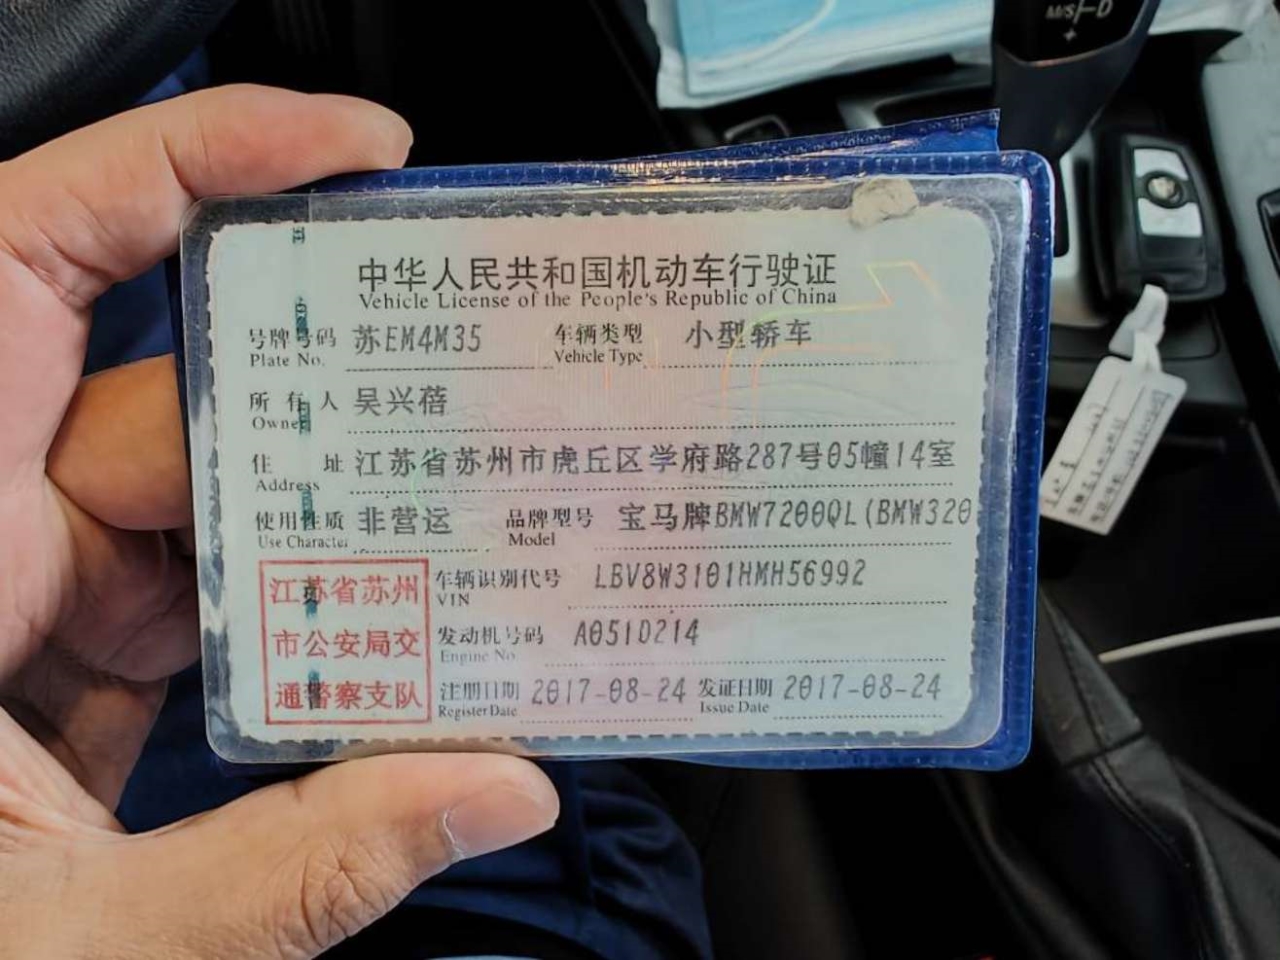 M/S D
中华人民共和国机动车行驶证
Vehicle License of the People's Republic of China
号牌号码 苏EM4M35 车辆类型 小型轿车
Plate No. Vehicle Type
所有人 吴兴蓓
Owner
住址 江苏省苏州市虎丘区学府路287号05幢14室
Address
使用性质 非营运 品牌型号 宝马牌BMW7200QL(BMW320
Use Character Model
江苏省苏州
市公安局交
通警察支队
车辆识别代号 LBV8W3101HMH56992
VIN
发动机号码 A051D214
Engine No.
注册日期 2017-08-24 发证日期 2017-08-24
Register Date Issue Date